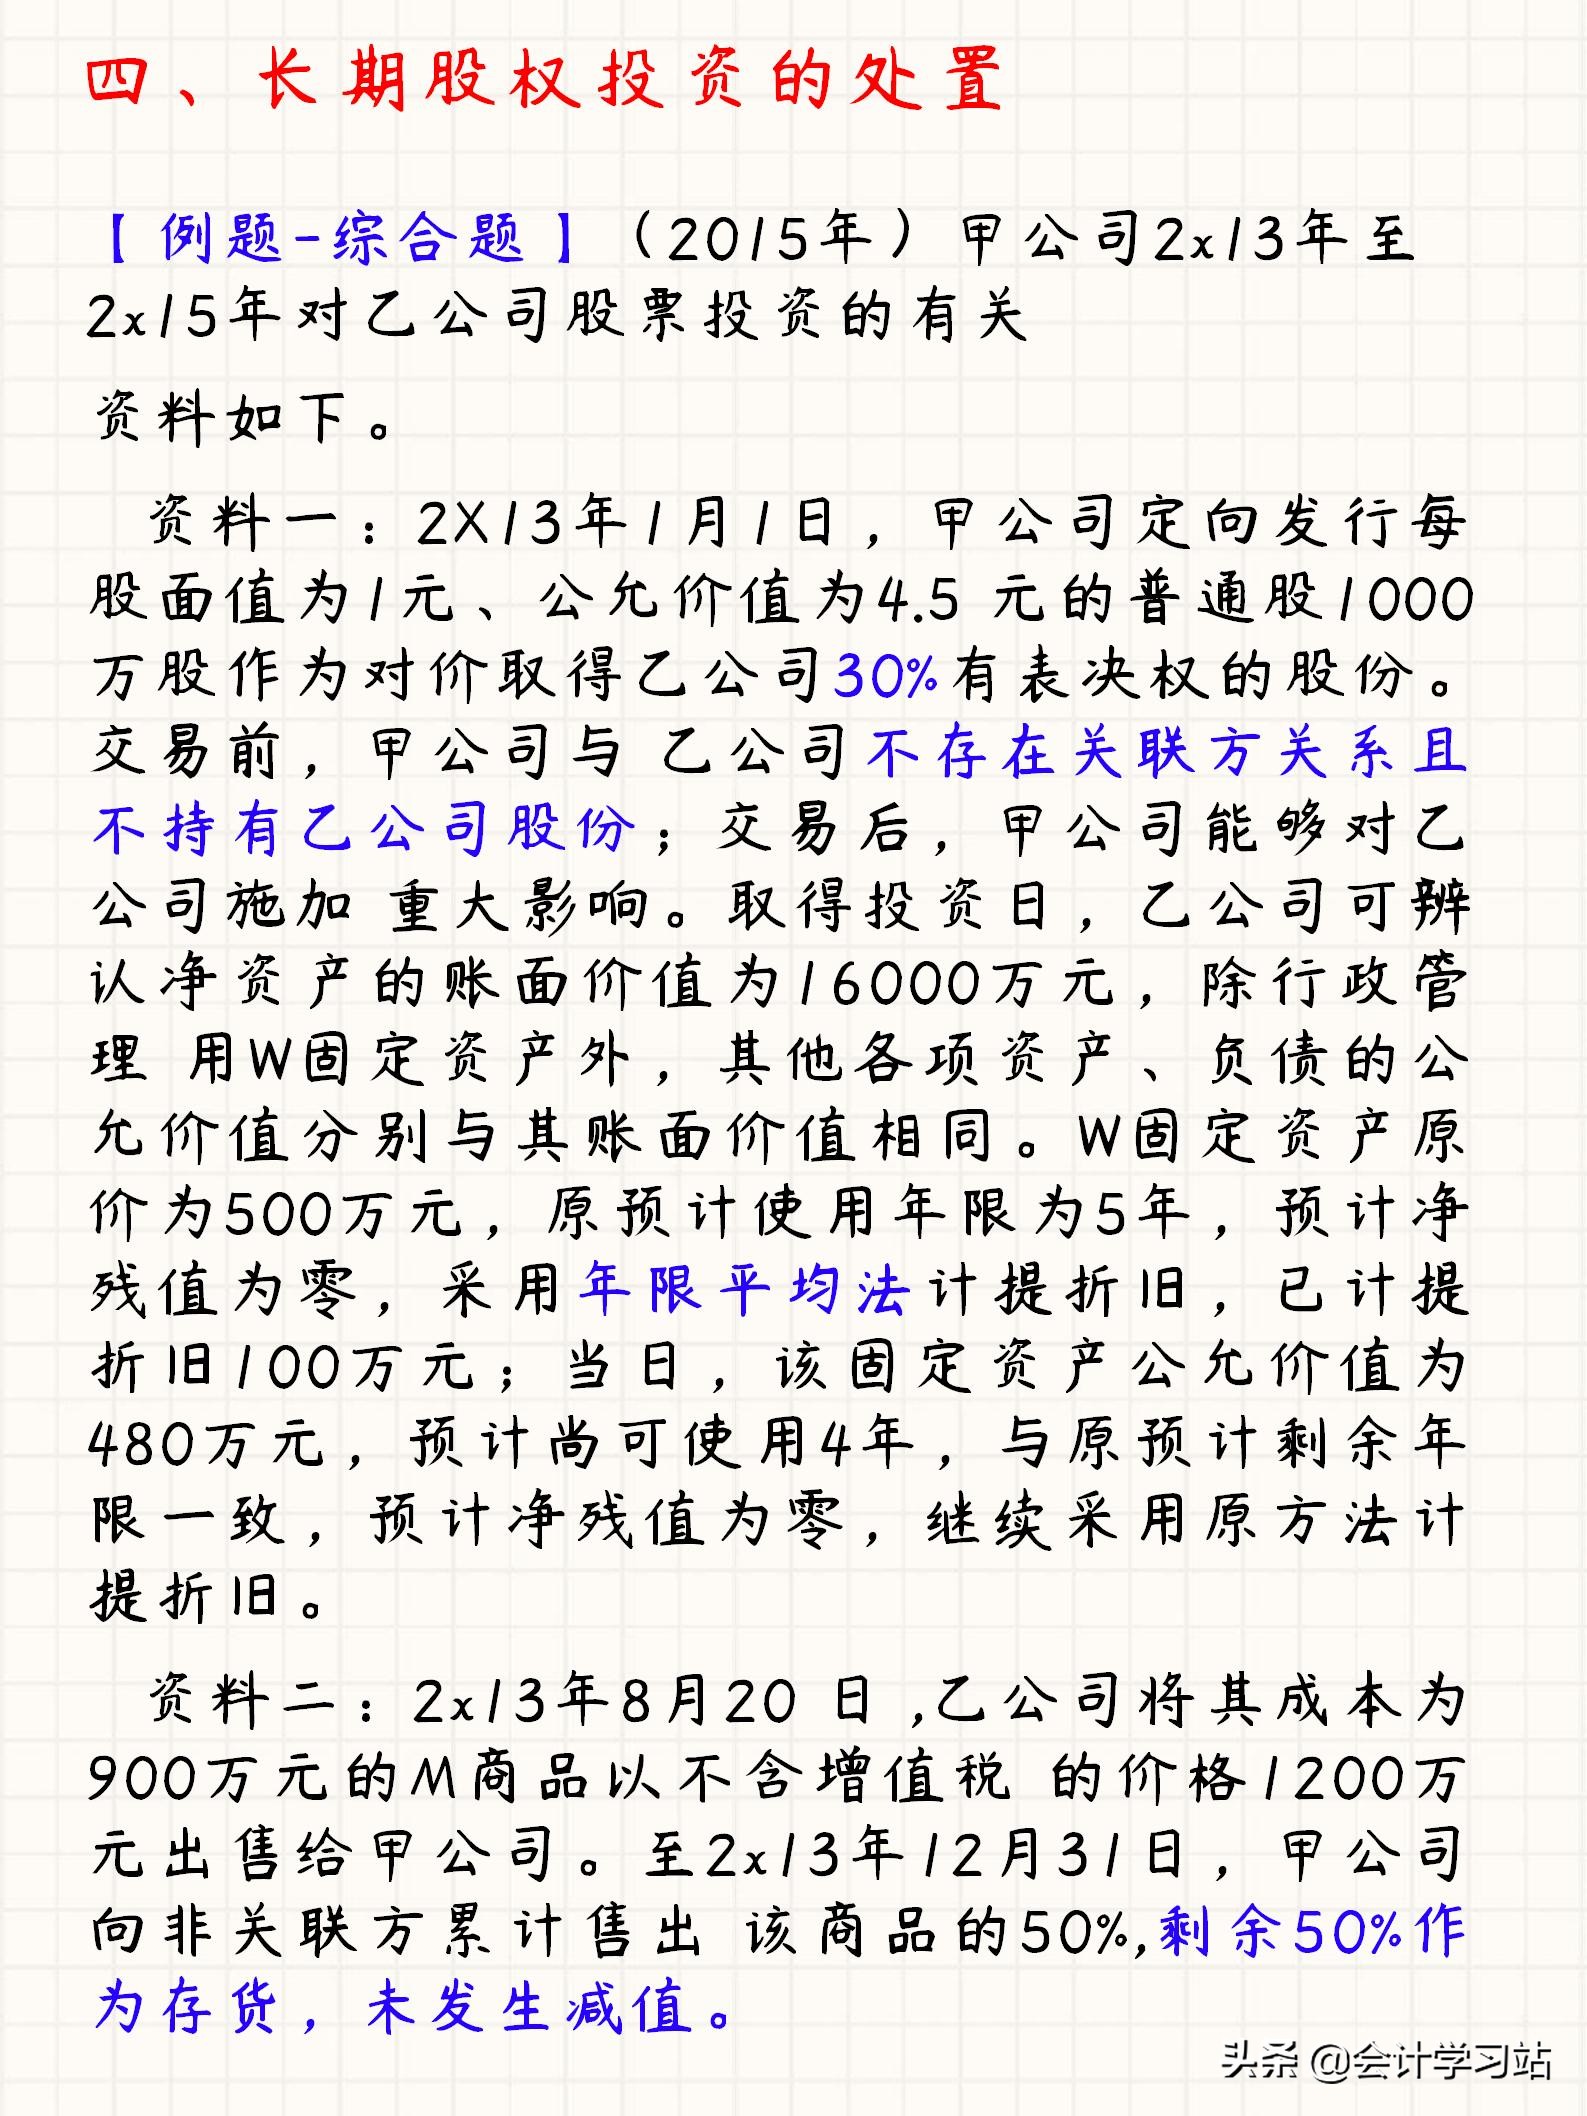 四、长期股权投资的处置
【例题-综合题】（2015年）甲公司2x13年至
2x15年对乙公司股票投资的有关
资料如下。
资料一：2X13年1月1日，甲公司定向发行每
股面值为1元、公允价值为4.5 元的普通股1000
万股作为对价取得乙公司30%有表决权的股份。
交易前，甲公司与 乙公司不存在关联方关系且
不持有乙公司股份；交易后，甲公司能够对乙
公司施加 重大影响。取得投资日，乙公司可辨
认净资产的账面价值为16000万元，除行政管
理 用W固定资产外，其他各项资产、负债的公
允价值分别与其账面价值相同。W固定资产原
价为500万元，原预计使用年限为5年，预计净
残值为零，采用年限平均法计提折旧，已计提
折旧100万元；当日，该固定资产公允价值为
480万元，预计尚可使用4年，与原预计剩余年
限一致，预计净残值为零，继续采用原方法计
提折旧。
资料二：2x13年8月20 日,乙公司将其成本为
900万元的M商品以不含增值税 的价格1200万
元出售给甲公司。至2x13年12月31日，甲公司
向非关联方累计售出 该商品的50%,剩余50%作
为存货，未发生减值。
头条 @会计学习站